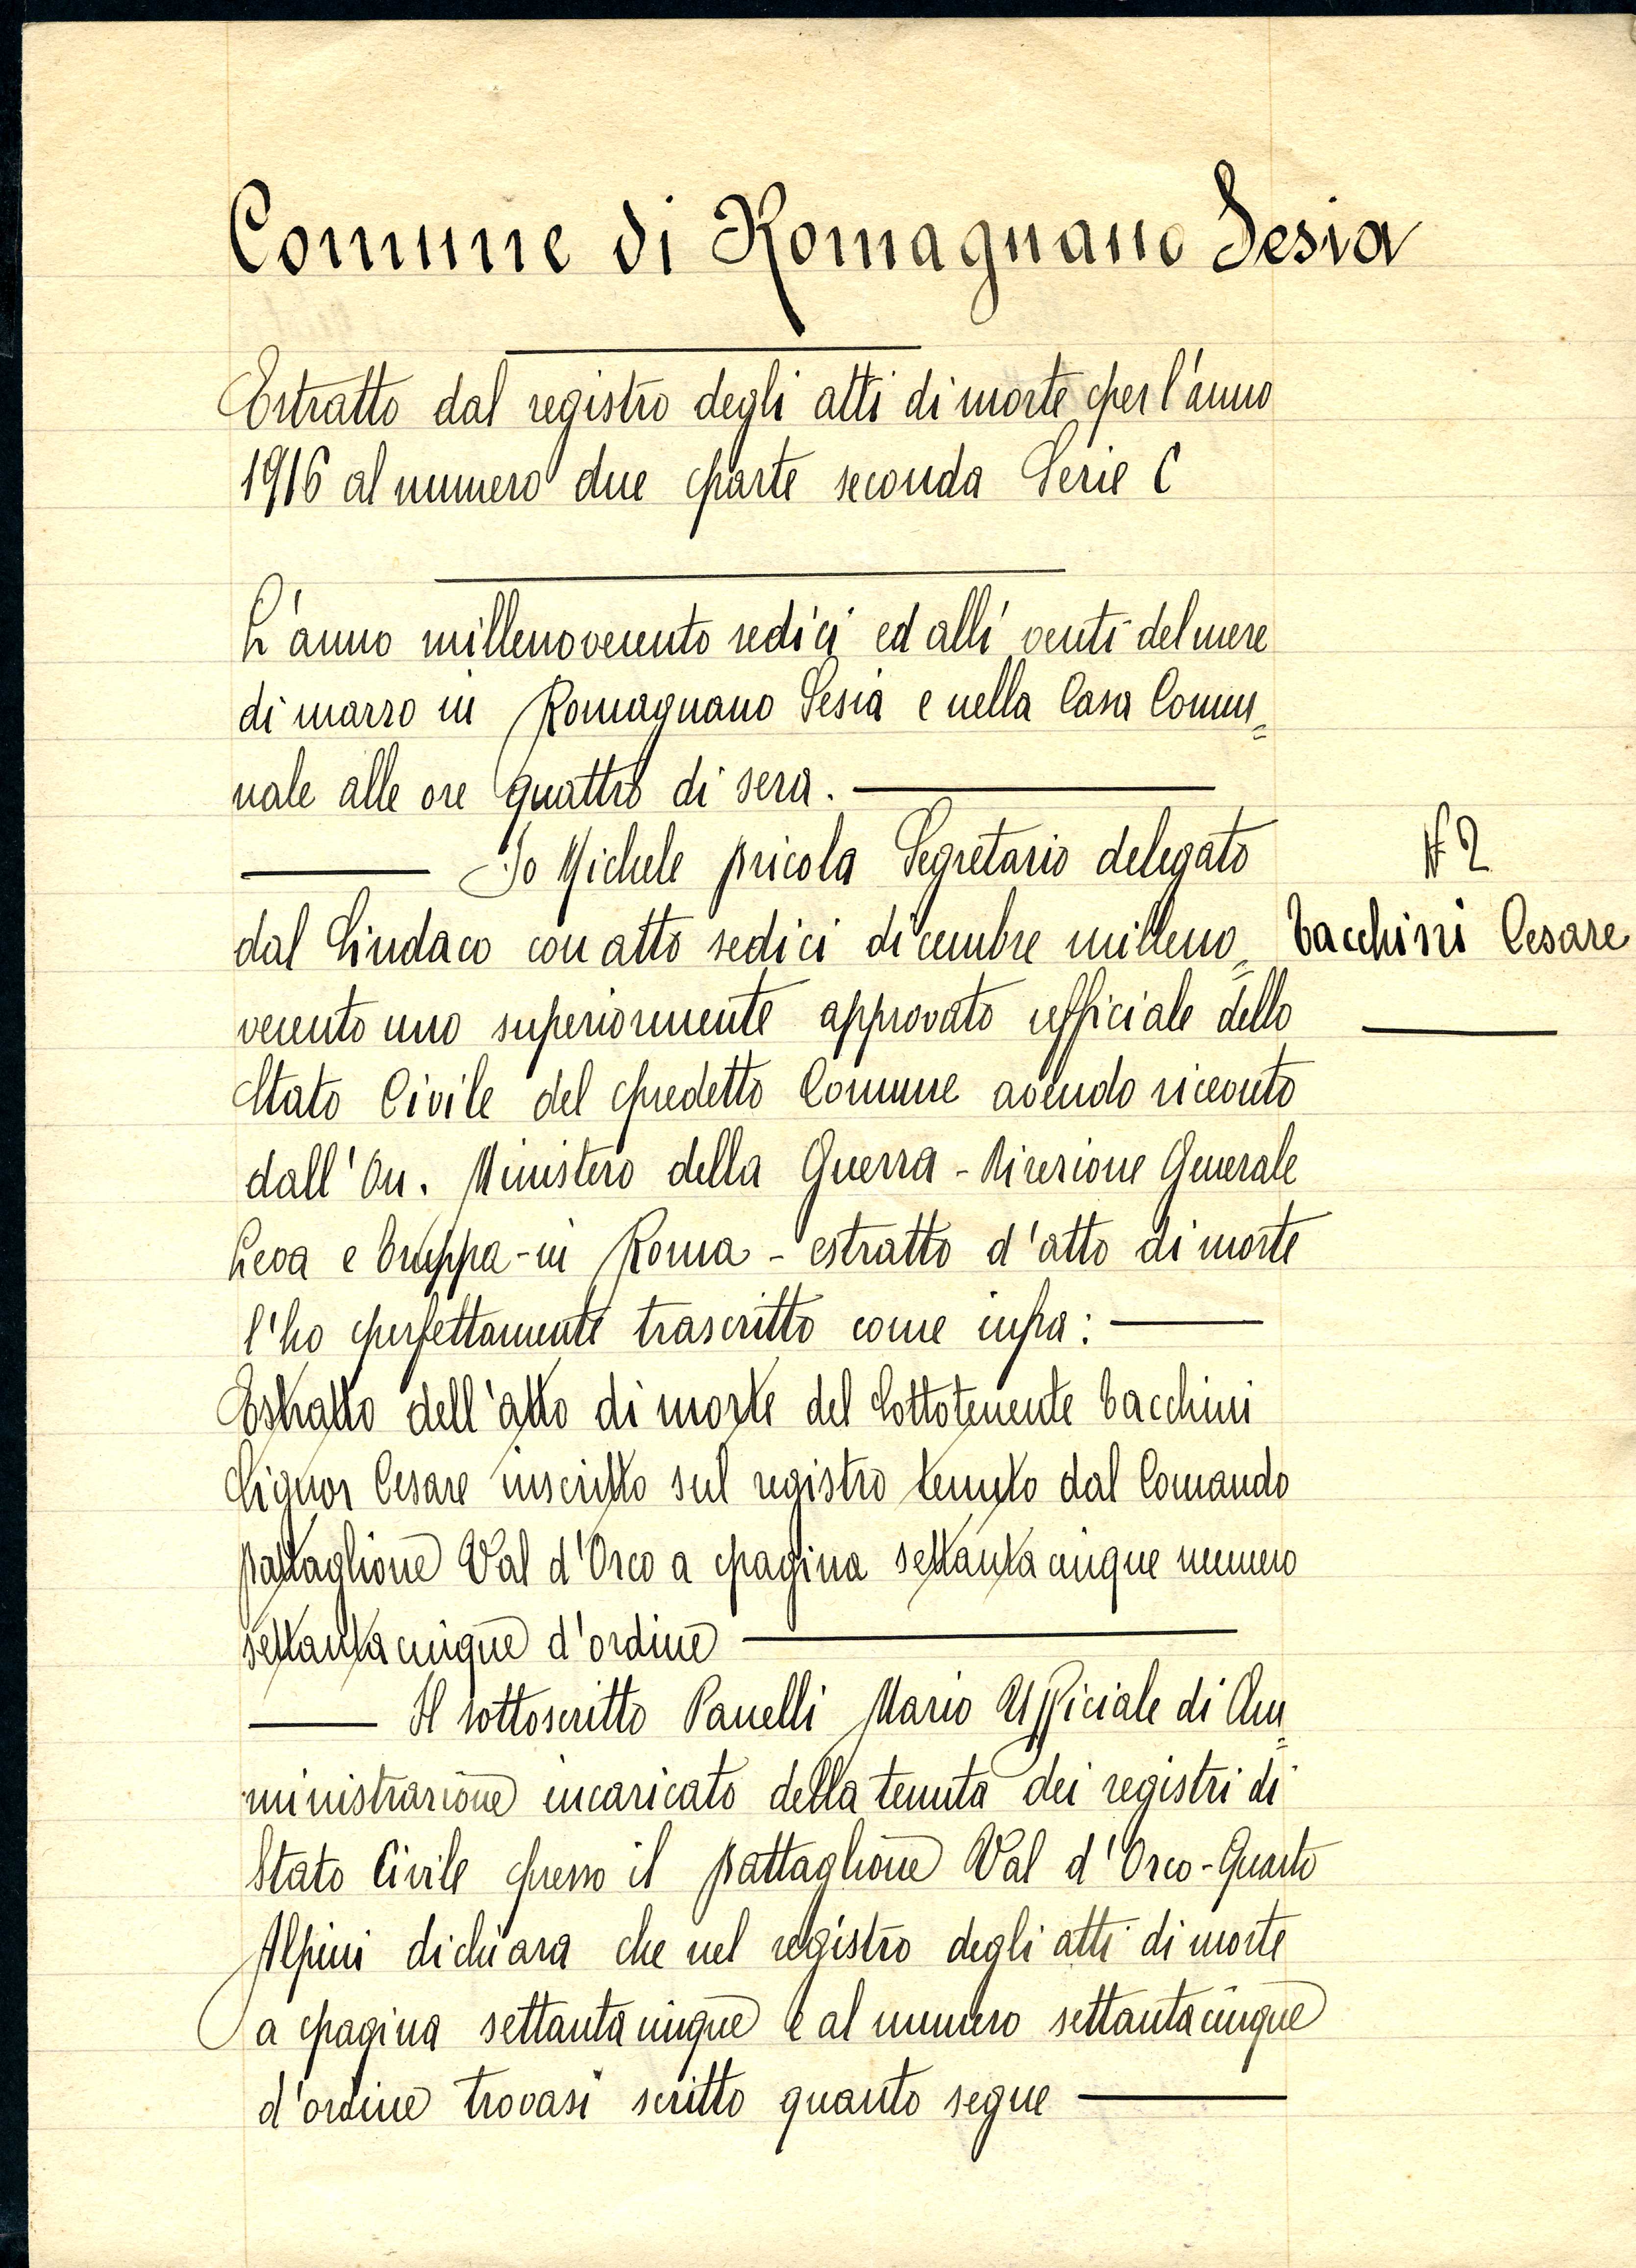 Comune di Romagnano Sesia
Estratto dal registro degli atti di morte per l'anno
1916 al numero due parte seconda Serie C
L'anno millenovecento sedici ed alli venti del mese
di marzo in Romagnano Sesia e nella Casa Comu=
nale alle ore quattro di sera.
Io Michele Bricola Segretario delegato
dal Sindaco con atto sedici dicembre milleno=
vecento uno superiormente approvato ufficiale dello
Stato Civile del predetto Comune avendo ricevuto
dall'On. Ministero della Guerra - Direzione Generale
Leva e Truppa - in Roma - estratto d'atto di morte
l'ho perfettamente trascritto come infra:
Estratto dell'atto di morte del Sottotenente Tacchini
Signor Cesare inscritto sul registro tenuto dal Comando
Battaglione Val d'Orco a pagina settantacinque numero
settantacinque d'ordine
Il sottoscritto Panelli Mario Ufficiale di Am=
ministrazione incaricato della tenuta dei registri di
Stato Civile presso il Battaglione Val d'Orco - Quarto
Alpini dichiara che nel registro degli atti di morte
a pagina settantacinque e al numero settantacinque
d'ordine trovasi scritto quanto segue
N 2
Tacchini Cesare